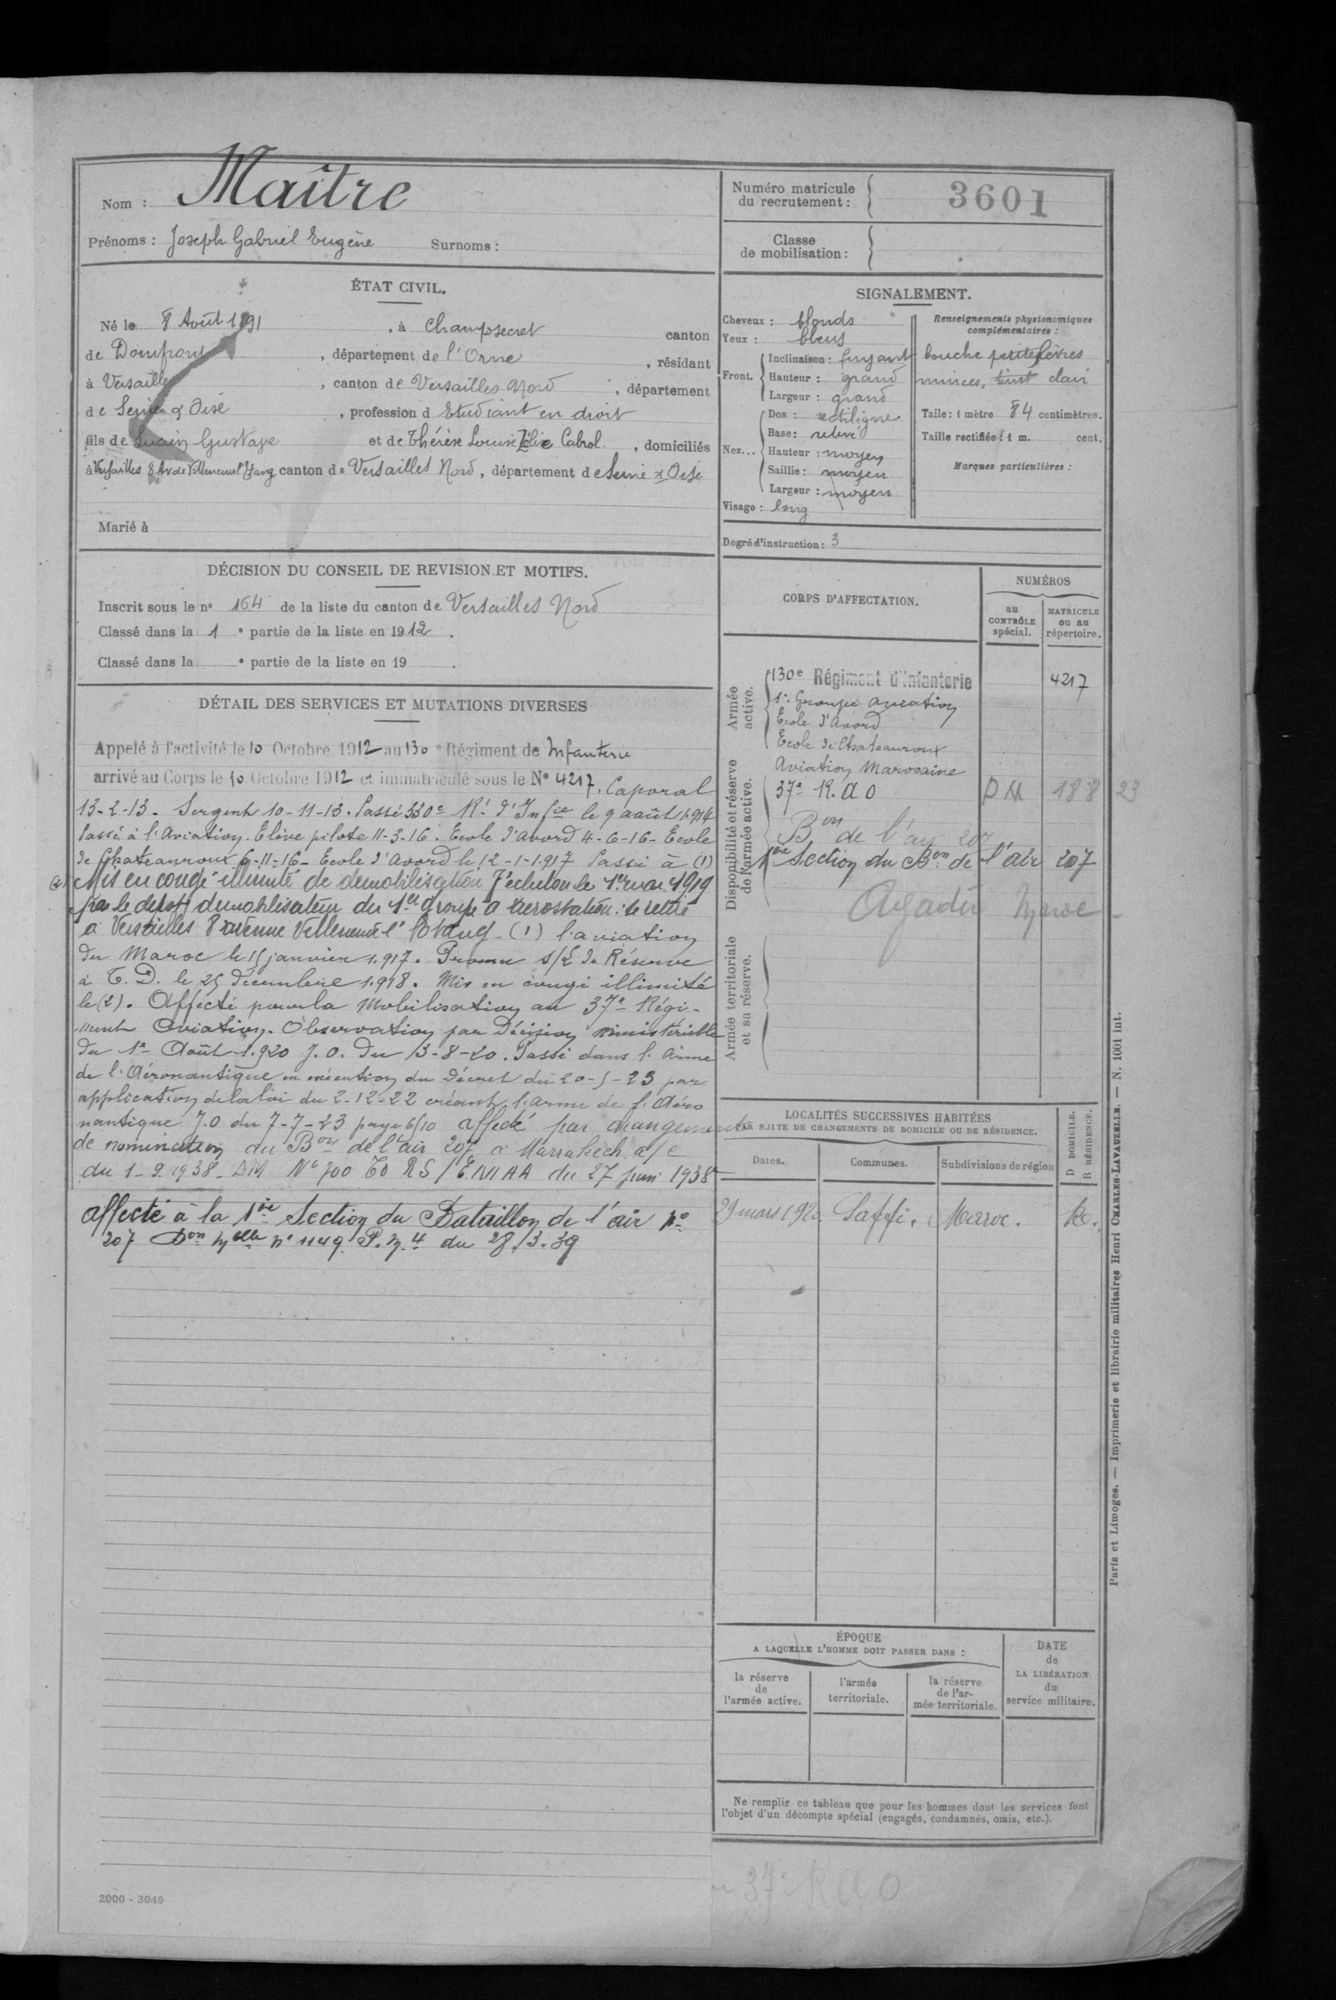 Nom : Maître
Prénoms : Joseph Gabriel Eugène Surnoms :
ÉTAT CIVIL.
Né le 8 Août 1891, à Champsecret canton
de Domfront, département de l'Orne, résidant
à Versailles, canton de Versailles Nord, département
de Seine & Oise, profession d Etudiant en droit
fils de Lucien Gustave et de Thérèse Louise Zélie Cabrol, domiciliés
à Versailles 8 Av de Villeneuve l'Etang canton de Versailles Nord, département de Seine & Oise
Marié à
DÉCISION DU CONSEIL DE REVISION ET MOTIFS.
Inscrit sous le n° 164 de la liste du canton de Versailles Nord
Classé dans la 1 e partie de la liste en 1912.
Classé dans la e partie de la liste en 19 .
DÉTAIL DES SERVICES ET MUTATIONS DIVERSES
Appelé à l'activité le 10 Octobre 1912 au 130 e Régiment de Infanterie
arrivé au Corps le 10 Octobre 1912 et immatriculé sous le N° 4217. Caporal
13-2-13. Sergent 10-11-13. Passé 330e Rt d'Infie le 9 août 1914
Passé à l'Aviation. Elève pilote 11-3-16. Ecole d'Avord 4-6-16- Ecole
de Chateauroux 6-11-16- Ecole d'Avord le 12-1-1917 Passé à (1)
(2) Mis en congé illimité de démobilisation 7e échelon le 1er mai 1919
par le dépôt démobilisateur du 1er groupe d'aérostation. se retire
à Versailles 8 avenue Villeneuve l'Etang - (1) l'aviation
du Maroc le 15 janvier 1917. Promu s/Lt de Réserve
à T. D. le 25 décembre 1918. Mis en congé illimité
le (2). Affecté pour la Mobilisation au 37e Régi-
ment Aviation. Observation par Décision ministérielle
du 1er Août 1920 J.O. du 3-8-20. Passé dans l'Arme
de l'Aéronautique en exécution du Décret du 20-5-23 par
application de la loi du 2-12-22 créant l'arme de l'Aéro
nautique J.O du 7-7-23 page 6510 affecté par changement
de nomination du Bon de l'air 207 à Marrakech a/c
du 1-9-1938 - DM N° 700 EO RS/EMAA du 27 juin 1938
affecté à la 1ère Section du Bataillon de l'air n°
207 Don Melle n° 1149 P.M.4 du 28.3.39
2000 - 3049
Numéro matricule du recrutement : 3601
Classe de mobilisation :
SIGNALEMENT.
Cheveux : blonds
Yeux : bleus
Front. Inclinaison : fuyant
Hauteur : grand
Largeur : grand
Nez... Dos : rectiligne
Base : relevé
Hauteur : moyen
Saillie : moyen
Largeur : moyen
Visage : long
Renseignements physionomiques complémentaires :
bouche petite lèvres
minces, teint clair
Taille : 1 mètre 84 centimètres.
Taille rectifiée : 1 m. cent.
Marques particulières :
Degré d'instruction : 3
CORPS D'AFFECTATION.
NUMÉROS
au CONTRÔLE spécial.
MATRICULE ou au répertoire.
Armée active.
130e Régiment d'Infanterie 4217
1er Groupe aviation
Ecole d'Avord
Ecole de Chateauroux
Aviation Marocaine
Disponibilité et réserve de l'armée active.
37e R.A.O DM 188 23
Bon de l'air 207
1ère Section du Bon de l'air 207
Agadir Maroc
Armée territoriale et sa réserve.
LOCALITÉS SUCCESSIVES HABITÉES
PAR SUITE DE CHANGEMENTS DE DOMICILE OU DE RÉSIDENCE.
Dates. Communes. Subdivisions de région D DOMICILE. R RÉSIDENCE.
29 mars 1920 Saffi. Maroc. R.
ÉPOQUE
A LAQUELLE L'HOMME DOIT PASSER DANS :
la réserve de l'armée active.
l'armée territoriale.
la réserve de l'armée territoriale.
DATE de LA LIBÉRATION du service militaire.
Ne remplir ce tableau que pour les hommes dont les services font
l'objet d'un décompte spécial (engagés, condamnés, omis, etc.).
37e R A O
Paris et Limoges. — Imprimerie et librairie militaires Henri CHARLES-LAVAUZELLE. — N. 1001 int.